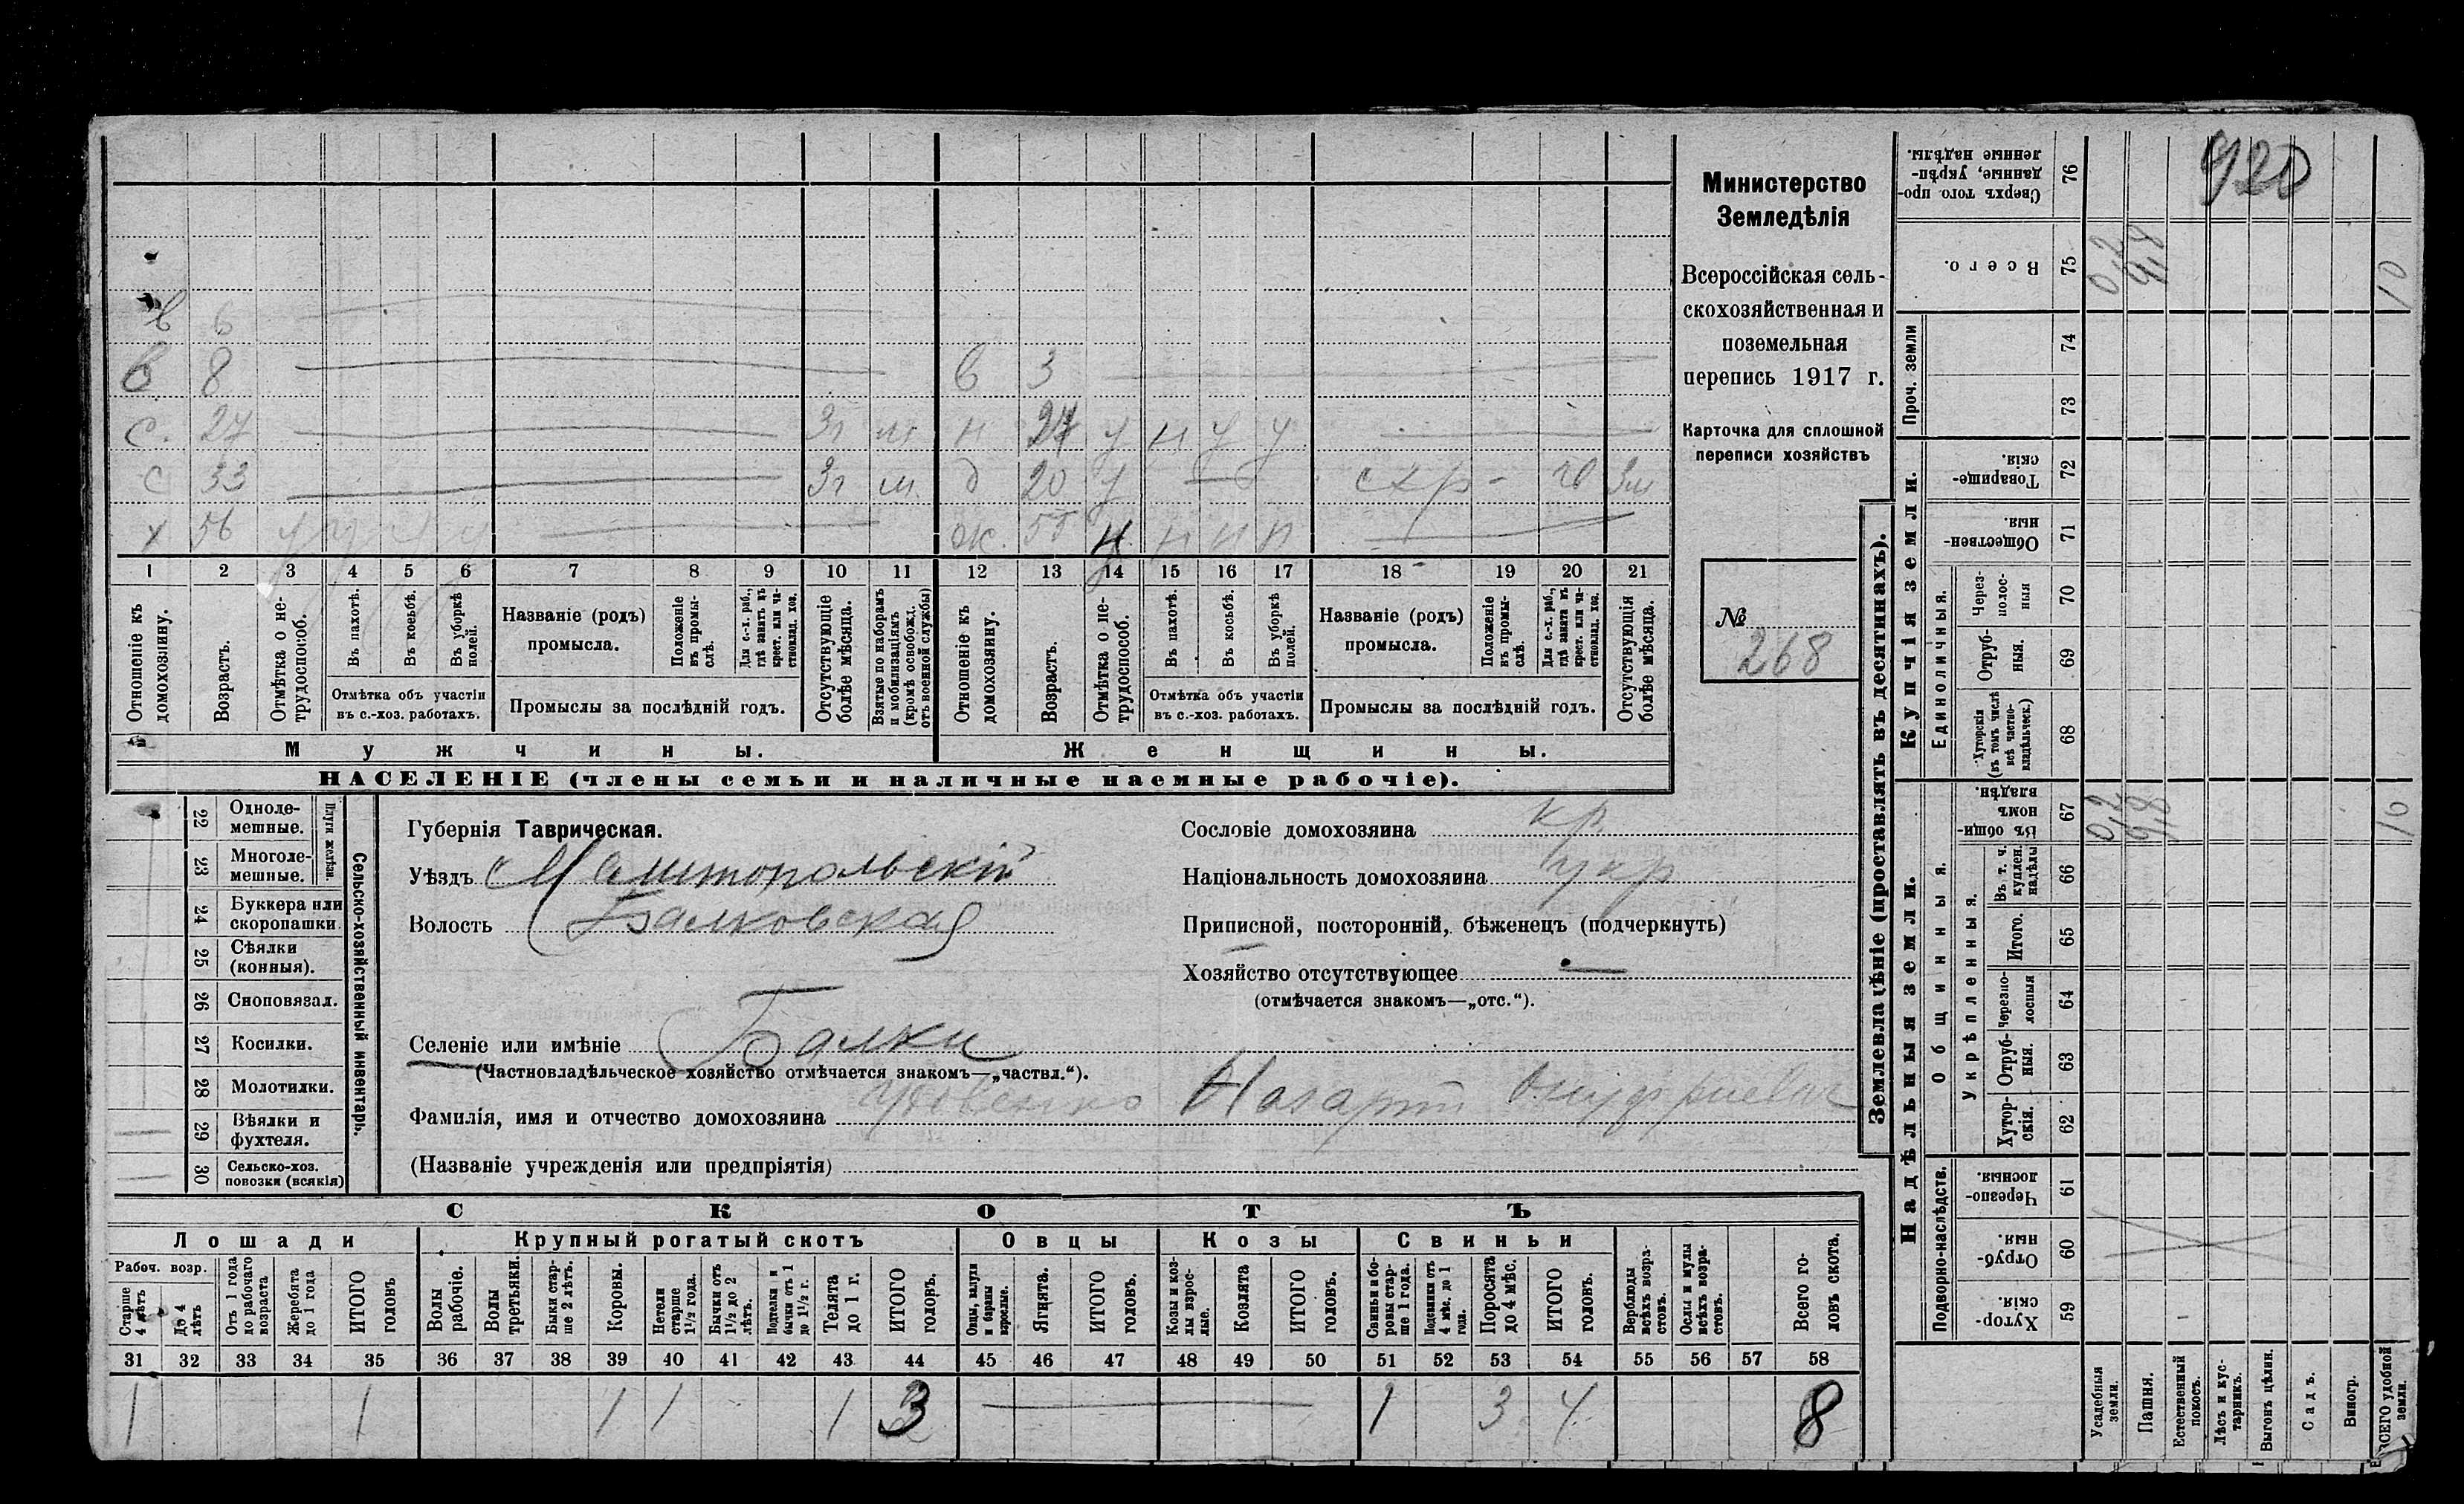 920
Министерство
Земледѣлія
Всероссійская сель-
скохозяйственная и
поземельная
перепись 1917 г.
Карточка для сплошной
переписи хозяйствъ
№
268
в 6
в 8 в 3
с. 27 3г н 27 у н у у
с 33 3г д 20 у схр-
х 56 у у у у ж. 55 н н н н
1 2 3 4 5 6 7 8 9 10 11 12 13 14 15 16 17 18 19 20 21
Отношеніе къ домохозяину.
Возрастъ.
Отмѣтка о не-трудоспособ.
Въ пахотѣ.
Въ косьбѣ.
Въ уборкѣ полей.
Отмѣтка объ участіи
въ с.-хоз. работахъ.
Названіе (родъ)
промысла.
Положеніе въ промы-слѣ.
Для с.-х. раб., гдѣ занятъ въ крест. или ча-стновлад. хоз.
Промыслы за послѣдній годъ.
Отсутствующіе болѣе мѣсяца.
Взятые по наборамъ и мобилизаціямъ (кромѣ освобожд. отъ военной службы)
Отношеніе къ домохозяину.
Возрастъ.
Отмѣтка о не-трудоспособ.
Въ пахотѣ.
Въ косьбѣ.
Въ уборкѣ полей.
Отмѣтка объ участіи
въ с.-хоз. работахъ.
Названіе (родъ)
промысла.
Положеніе въ промы-слѣ.
Для с.-х. раб., гдѣ занята въ крест. или ча-стновлад. хоз.
Промыслы за послѣдній годъ.
Отсутствующія болѣе мѣсяца.
Мужчины. Женщины.
НАСЕЛЕНІЕ (члены семьи и наличные наемные рабочіе).
Сельско-хозяйственный инвентарь.
Плуги желѣзн.
22 Одноле-мешные.
23 Многоле-мешные.
24 Буккера или скоропашки.
25 Сѣялки (конныя).
26 Сноповязал.
27 Косилки.
28 Молотилки.
29 Вѣялки и фухтеля.
30 Сельско-хоз. повозки (всякія)
Губернія Таврическая.
Уѣздъ Мелитопольскій
Волость Балковская
Селеніе или имѣніе Балки
(Частновладѣльческое хозяйство отмѣчается знакомъ—„частвл.“).
Фамилія, имя и отчество домохозяина Удовенко Назарт Онуфриевич
(Названіе учрежденія или предпріятія)
Сословіе домохозяина кр
Національность домохозяина укр
Приписной, посторонній, бѣженецъ (подчеркнуть)
Хозяйство отсутствующее —
(отмѣчается знакомъ—„отс.“).
СКОТЪ
Лошади Крупный рогатый скотъ Овцы Козы Свиньи
Рабоч. возр.
Старше 4 лѣтъ
До 4 лѣтъ
Отъ 1 года до рабочаго возраста
Жеребята до 1 года
ИТОГО головъ
Волы рабочіе.
Волы третьяки.
Быки стар-ше 2 лѣтъ.
Коровы.
Нетели старше 1½ года.
Бычки отъ 1½ до 2 лѣтъ.
Подтелки и бычки отъ 1 до 1½ г.
Телята до 1 г.
ИТОГО головъ.
Овцы, валухи и бараны взрослые.
Ягнята.
ИТОГО головъ.
Козы и коз-лы взрос-лые.
Козлята
ИТОГО головъ.
Свиньи и бо-ровы стар-ше 1 года.
Подсвинки отъ 4 мѣс. до 1 года.
Поросята до 4 мѣс.
ИТОГО головъ.
Верблюды всѣхъ возра-стовъ.
Ослы и мулы всѣхъ возра-стовъ.
Всего го-ловъ скота.
31 32 33 34 35 36 37 38 39 40 41 42 43 44 45 46 47 48 49 50 51 52 53 54 55 56 57 58
1 1 1 1 1 3 1 3 4 8
Землевладѣніе (проставлять въ десятинахъ).
Купчія земли.
Надѣльныя земли.
Сверхъ того про-данные, укрѣп-ленные надѣлы. 76
Всего. 75 0,2 9,8 10
Проч. земли
74
73
Товарище-скія. 72
Обществен-ныя. 71
Единоличныя.
Через-полос-ныя 70
Отруб-ныя. 69
Хуторскія (въ томъ числѣ всѣ частно-владѣльческ.) 68
Общинныя.
Въ общи-номъ владѣн. 67 0,2 9,8 10
Укрѣпленныя.
Въ т. ч. куплен. надѣлы 66
Итого. 65
Черезпо-лосныя 64
Отруб-ныя. 63
Хутор-скія. 62
Подворно-наслѣдств.
Черезпо-лосныя. 61
Отруб-ныя. 60
Хутор-скія. 59
Усадебныя земли.
Пашня.
Естественный покосъ.
Лѣсъ и кус-тарникъ.
Выгонъ цѣлин.
Садъ.
Виногр.
ВСЕГО удобной земли.